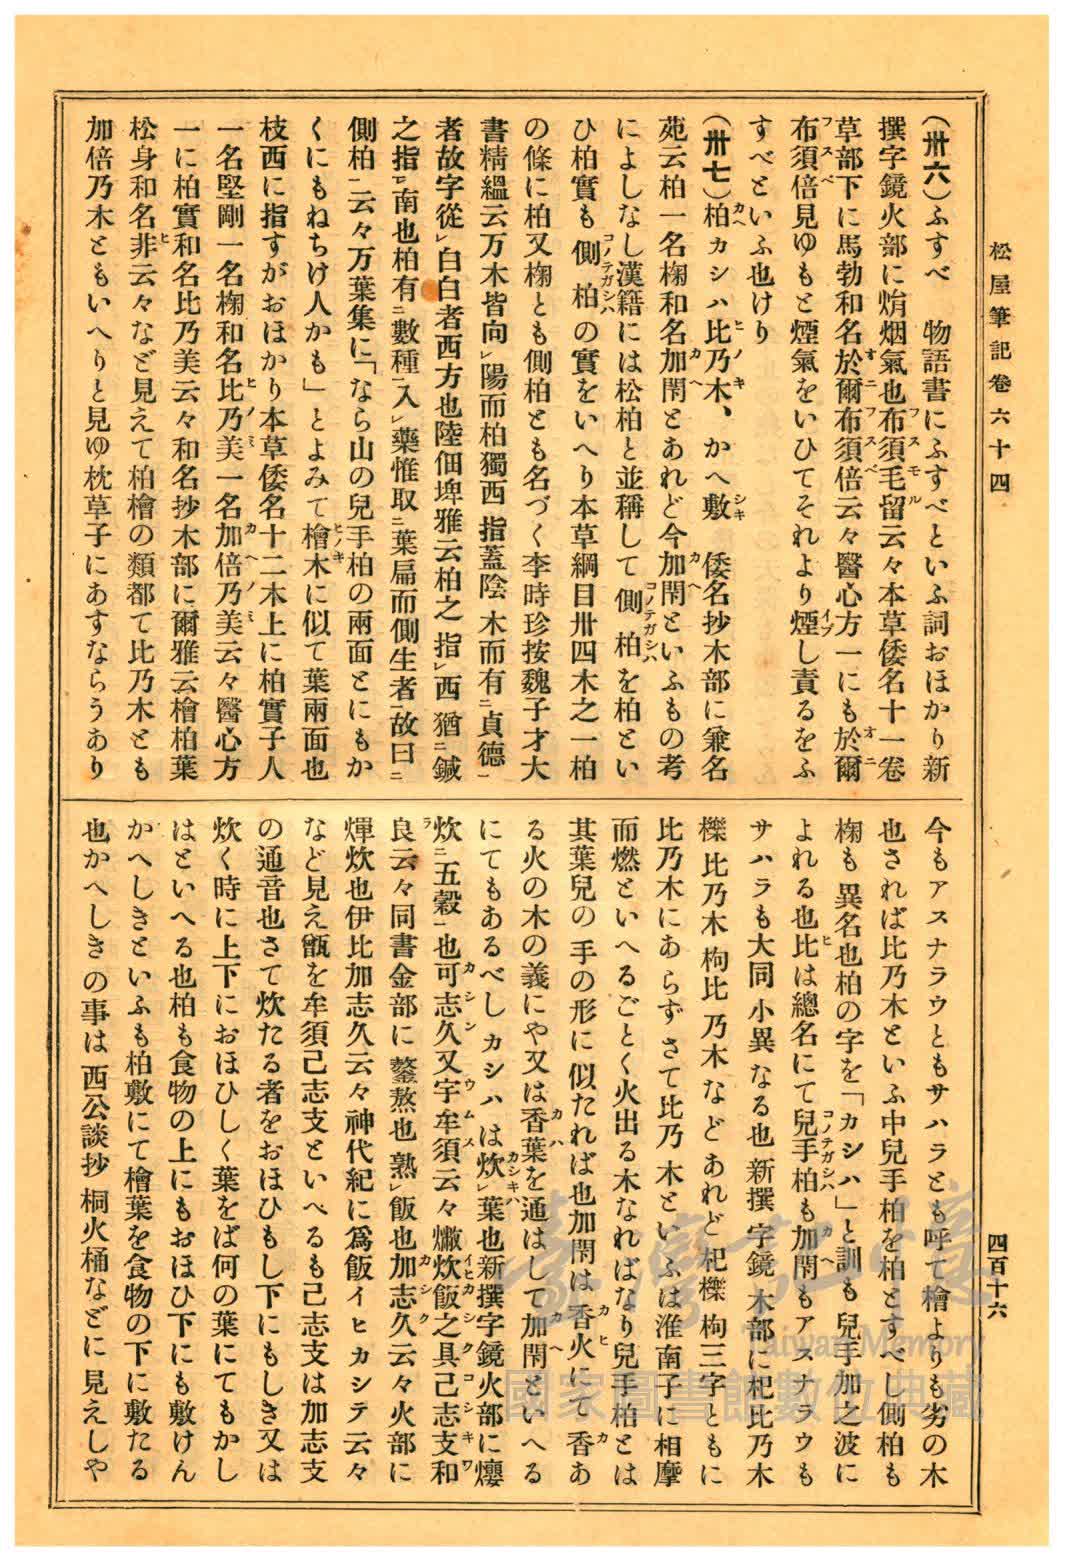 松屋筆記卷六十四
四百十六
(卅六)ふすべ　物語書にふすべといふ詞おほかり新
撰字鏡火部に焇烟氣也布須毛留云々本草倭名十一卷
草部下に馬勃和名於爾布須倍云々醫心方一にも於爾
布須倍見ゆもと煙氣をいひてそれより煙し責るをふ
すべといふ也けり
(卅七)柏カシハ比乃木、かへ敷　倭名抄木部に兼名
苑云柏一名椈和名加閇とあれど今加閇といふもの考
によしなし漢籍には松柏と並稱して側柏を柏とい
ひ柏實も側柏の實をいへり本草綱目卅四木之一柏
の條に柏又椈とも側柏とも名づく李時珍按魏子才大
書精縕云万木皆向レ陽而柏獨西指蓋陰木而有二貞德一
者故字從レ白白者西方也陸佃埤雅云柏之指レ西猶二鍼
之指一レ南也柏有二數種一入レ藥惟取二葉扁而側生者一故曰二
側柏一云々万葉集に「なら山の兒手柏の兩面とにもか
くにもねちけ人かも」とよみて檜木に似て葉兩面也
枝西に指すがおほかり本草倭名十二木上に柏實子人
一名堅剛一名椈和名比乃美一名加倍乃美云々醫心方
一に柏實和名比乃美云々和名抄木部に爾雅云檜柏葉
松身和名非云々など見えて柏檜の類都て比乃木とも
加倍乃木ともいへりと見ゆ枕草子にあすならうあり
今もアスナラウともサハラとも呼て檜よりも劣の木
也されば比乃木といふ中兒手柏を柏とすべし側柏も
椈も異名也柏の字を「カシハ」と訓も兒手加之波に
よれる也比は總名にて兒手柏も加閇もアスナラウも
サハラも大同小異なる也新撰字鏡木部に杞比乃木
櫟比乃木枸比乃木などあれど杞櫟枸三字ともに
比乃木にあらずさて比乃木といふは淮南子に相摩
而燃といへるごとく火出る木なればなり兒手柏とは
其葉兒の手の形に似たれば也加閇は香火にて香あ
る火の木の義にや又は香葉を通はして加閇といへる
にてもあるべしカシハは炊レ葉也新撰字鏡火部に𤓖
炊二五穀一也可志久又宇牟須云々爤炊飯之具己志支和
良云々同書金部に鏊熬也熟レ飯也加志久云々火部に
煇炊也伊比加志久云々神代紀に爲飯イヒカシテ云々
など見え甑を牟須己志支といへるも己志支は加志支
の通音也さて炊たる者をおほひもし下にもしき又は
炊く時に上下におほひしく葉をば何の葉にてもかし
はといへる也柏も食物の上にもおほひ下にも敷けん
かへしきといふも柏敷にて檜葉を食物の下に敷たる
也かへしきの事は西公談抄桐火桶などに見えしや
臺灣記憶
Taiwan Memory
國家圖書館數位典藏